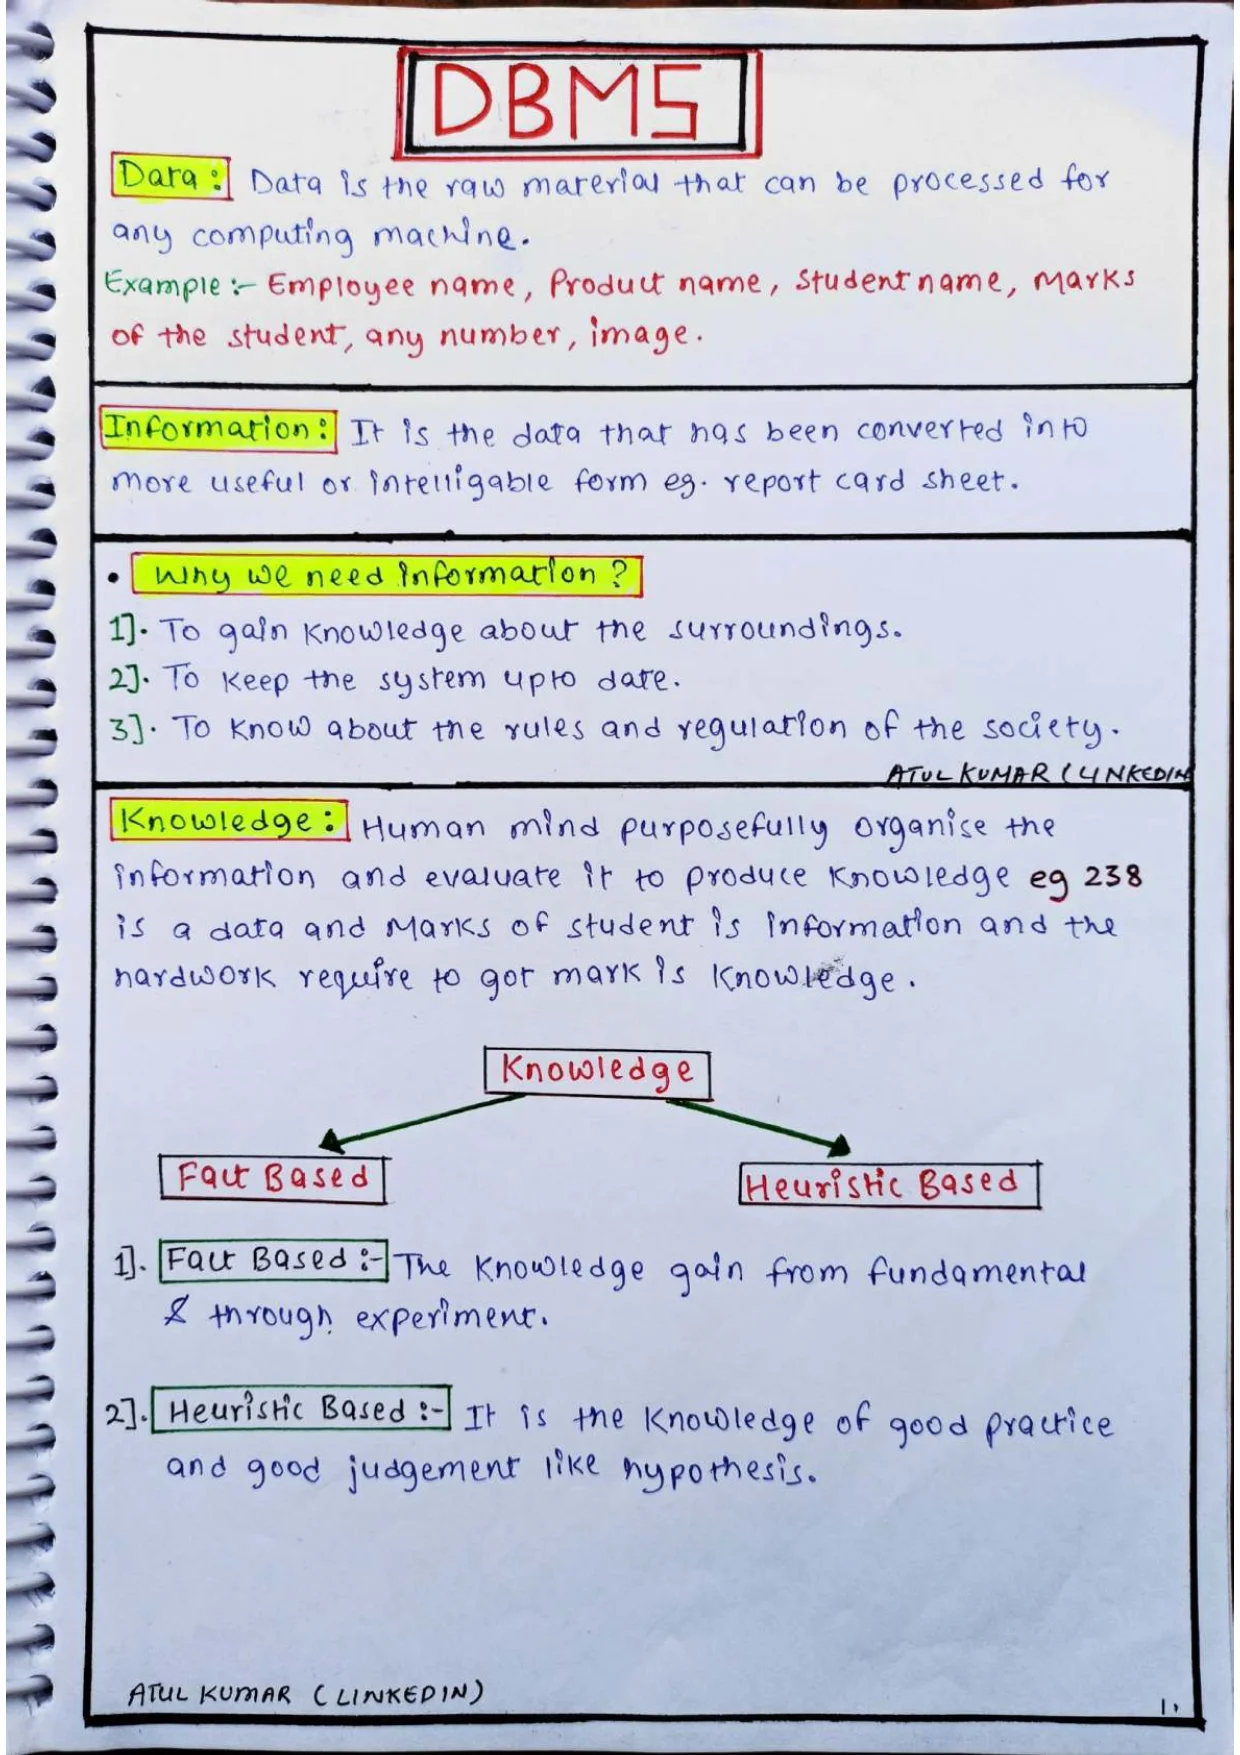 DBMS
Data : Data is the raw material that can be processed for
any computing machine.
Example :- Employee name, Product name, Student name, Marks
of the student, any number, image.
Information : It is the data that has been converted into
more useful or intelligable form eg. report card sheet.
• Why we need Information ?
1]. To gain Knowledge about the surroundings.
2]. To Keep the system upto date.
3]. To Know about the rules and regulation of the society.
ATUL KUMAR (LINKEDIN
Knowledge : Human mind purposefully organise the
information and evaluate it to produce Knowledge eg 238
is a data and Marks of student is information and the
hardwork require to got mark is Knowledge.
Knowledge
Fact Based
Heuristic Based
1]. Fact Based :- The Knowledge gain from fundamental
& through experiment.
2]. Heuristic Based :- It is the Knowledge of good practice
and good judgement like hypothesis.
ATUL KUMAR (LINKEDIN)
1.